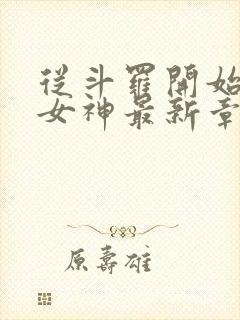 從斗羅開始
女神最新章
原壽雄